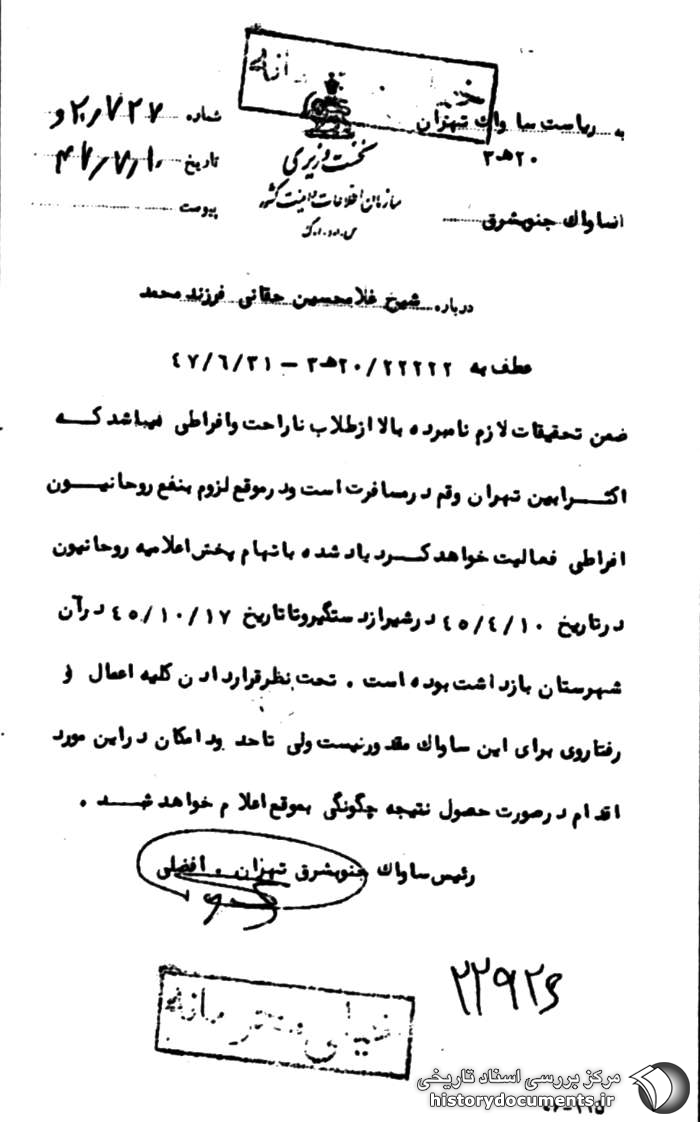 به ریاست ساواک تهران
۲۰ هـ ۳
از ساواک جنوبشرق
نخست وزیری
سازمان اطلاعات و امنیت کشور
س.ا.و.ا.ک
شماره ۲۰۷۲۷
تاریخ ۴۷/۷/۱۰
پیوست
درباره شیخ غلامحسین حقانی فرزند محمد
عطف به ۲۰/۲۲۲۲۲ هـ ۳ – ۴۷/۶/۳۱
ضمن تحقیقات لازم نامبرده بالا از طلاب ناراحت و افراطی میباشد که
اکثراً بین تهران و قم در مسافرت است و در موقع لزوم بنفع روحانیون
افراطی فعالیت خواهد کرد یاد شده با تهام پخش اعلامیه روحانیون
در تاریخ ۴۵/۴/۱۰ در شیراز دستگیر و تا تاریخ ۴۵/۱۰/۱۷ در آن
شهرستان بازداشت بوده است . تحت نظر قرار دادن کلیه اعمال و
رفتار وی برای این ساواک مقدور نیست ولی تا حدود امکان در این مورد
اقدام در صورت حصول نتیجه چگونگی بموقع اعلام خواهد شد .
رئیس ساواک جنوبشرق تهران . افضلی
خیلی محرمانه
مرکز بررسی اسناد تاریخی
historydocuments.ir